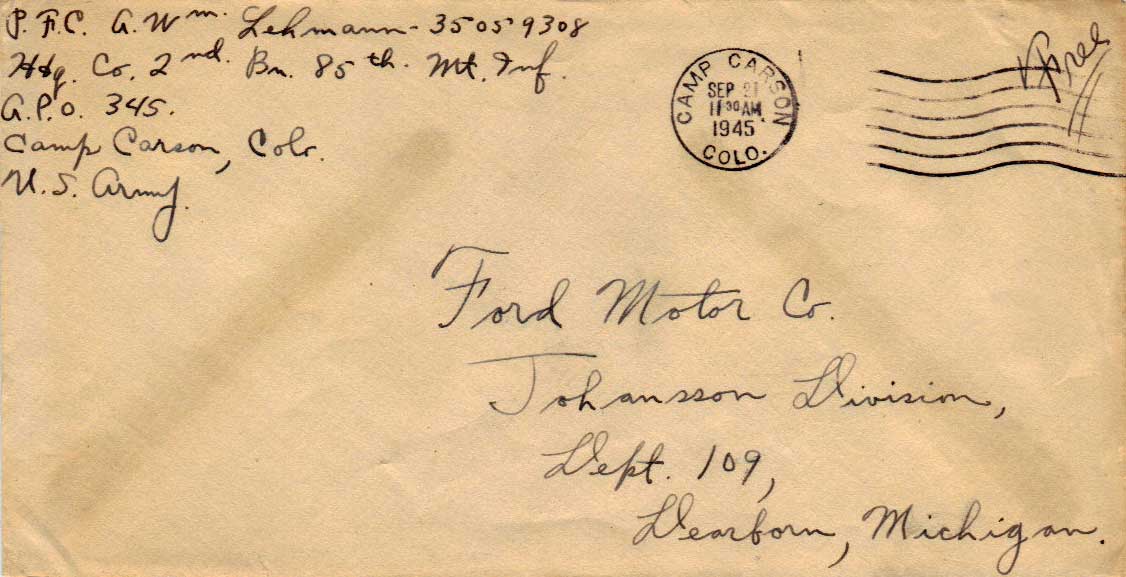 P.F.C. A. Wm. Lehmann - 35059308
Hdq. Co. 2nd. Bn. 85th. Mt. Inf.
A.P.O. 345.
Camp Carson, Colo.
U.S. Army.
CAMP CARSON
SEP 21
11 30 AM
1945
COLO.
Free
Ford Motor Co.
Johansson Division,
Dept. 109,
Dearborn, Michigan.